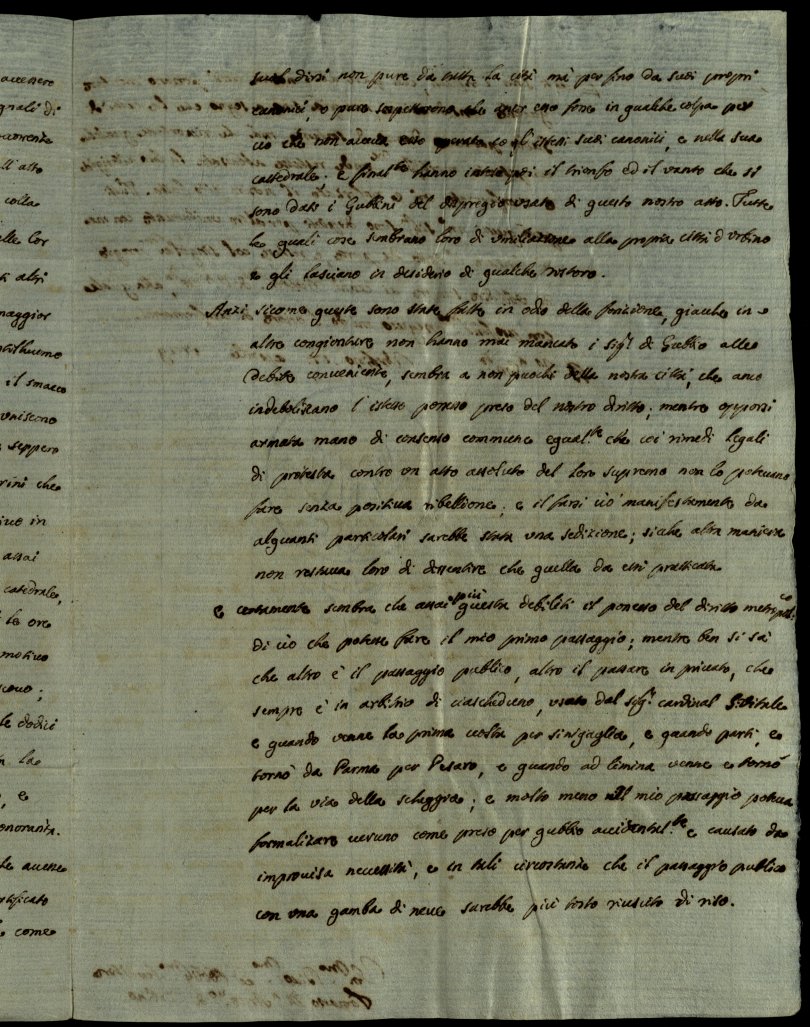 suol dirsi non pure da tutta la città mà per fino da suoi propri
canonici, o pure sospettarono che aver esso forse in qualche colpa per
ciò che non aveva esso operato co gl'istessi suoi canonici, e nella sua
cattedrale; e final.te hanno inteso poi il trionfo ed il vanto che si
sono dati i Gubbini del dispregio usato di questo nostro atto. Tutte
le quali cose sembrano loro di umiliazione alla propria città d'Urbino
e gli lasciano in desiderio di qualche ristoro.
Anzi siccome queste sono state fatte in odio della funzione, giacche in
altre congionture non hanno mai mancato i sig.ri di Gubbio alle
debite convenienze, sembra a non puochi della nostra città, che anco
indeboliscano l'istesso possesso preso del nostro diritto; mentre opporsi
armata mano di consenso commune egual.te che coi rimedi legali
di protesta contro un atto assoluto del loro supremo non lo potevano
fare senza positiva ribellione; e il farsi ciò manifestamente da
alquanti particolari sarebbe stata una sedizione; sicche altra maniera
non restava loro di dissentire che quella da essi praticata
E certamente sembra che assai più questa debiliti il possesso del diritto metrop.co
di ciò che potesse fare il mio primo passaggio; mentre ben si sà
che altro è il passaggio publico, altro il passare in privato, che
sempre è in arbitrio di ciascheduno, usato dal sig.r cardinal S. Vitale
e quando venne la prima volta per sinigaglia, e quando partì, e
tornò da Parma per Pesaro, e quando ad limina venne e tornò
per la via della scheggia; e molto meno nel mio passaggio poteva
formalizare veruno come preso per gubbio accidental.te e causato da
improvisa necessità, e in tali circostanze che il passaggio publico
con una gamba di neve sarebbe più tosto riuscito di riso.
accessero
quali di
all'atto
colla
alle lor
altri
maggior
il smacco
uniscono
seppero
rini che
in
assai
catedrale,
le ore
motivo
dodici
la
e
avesse
come